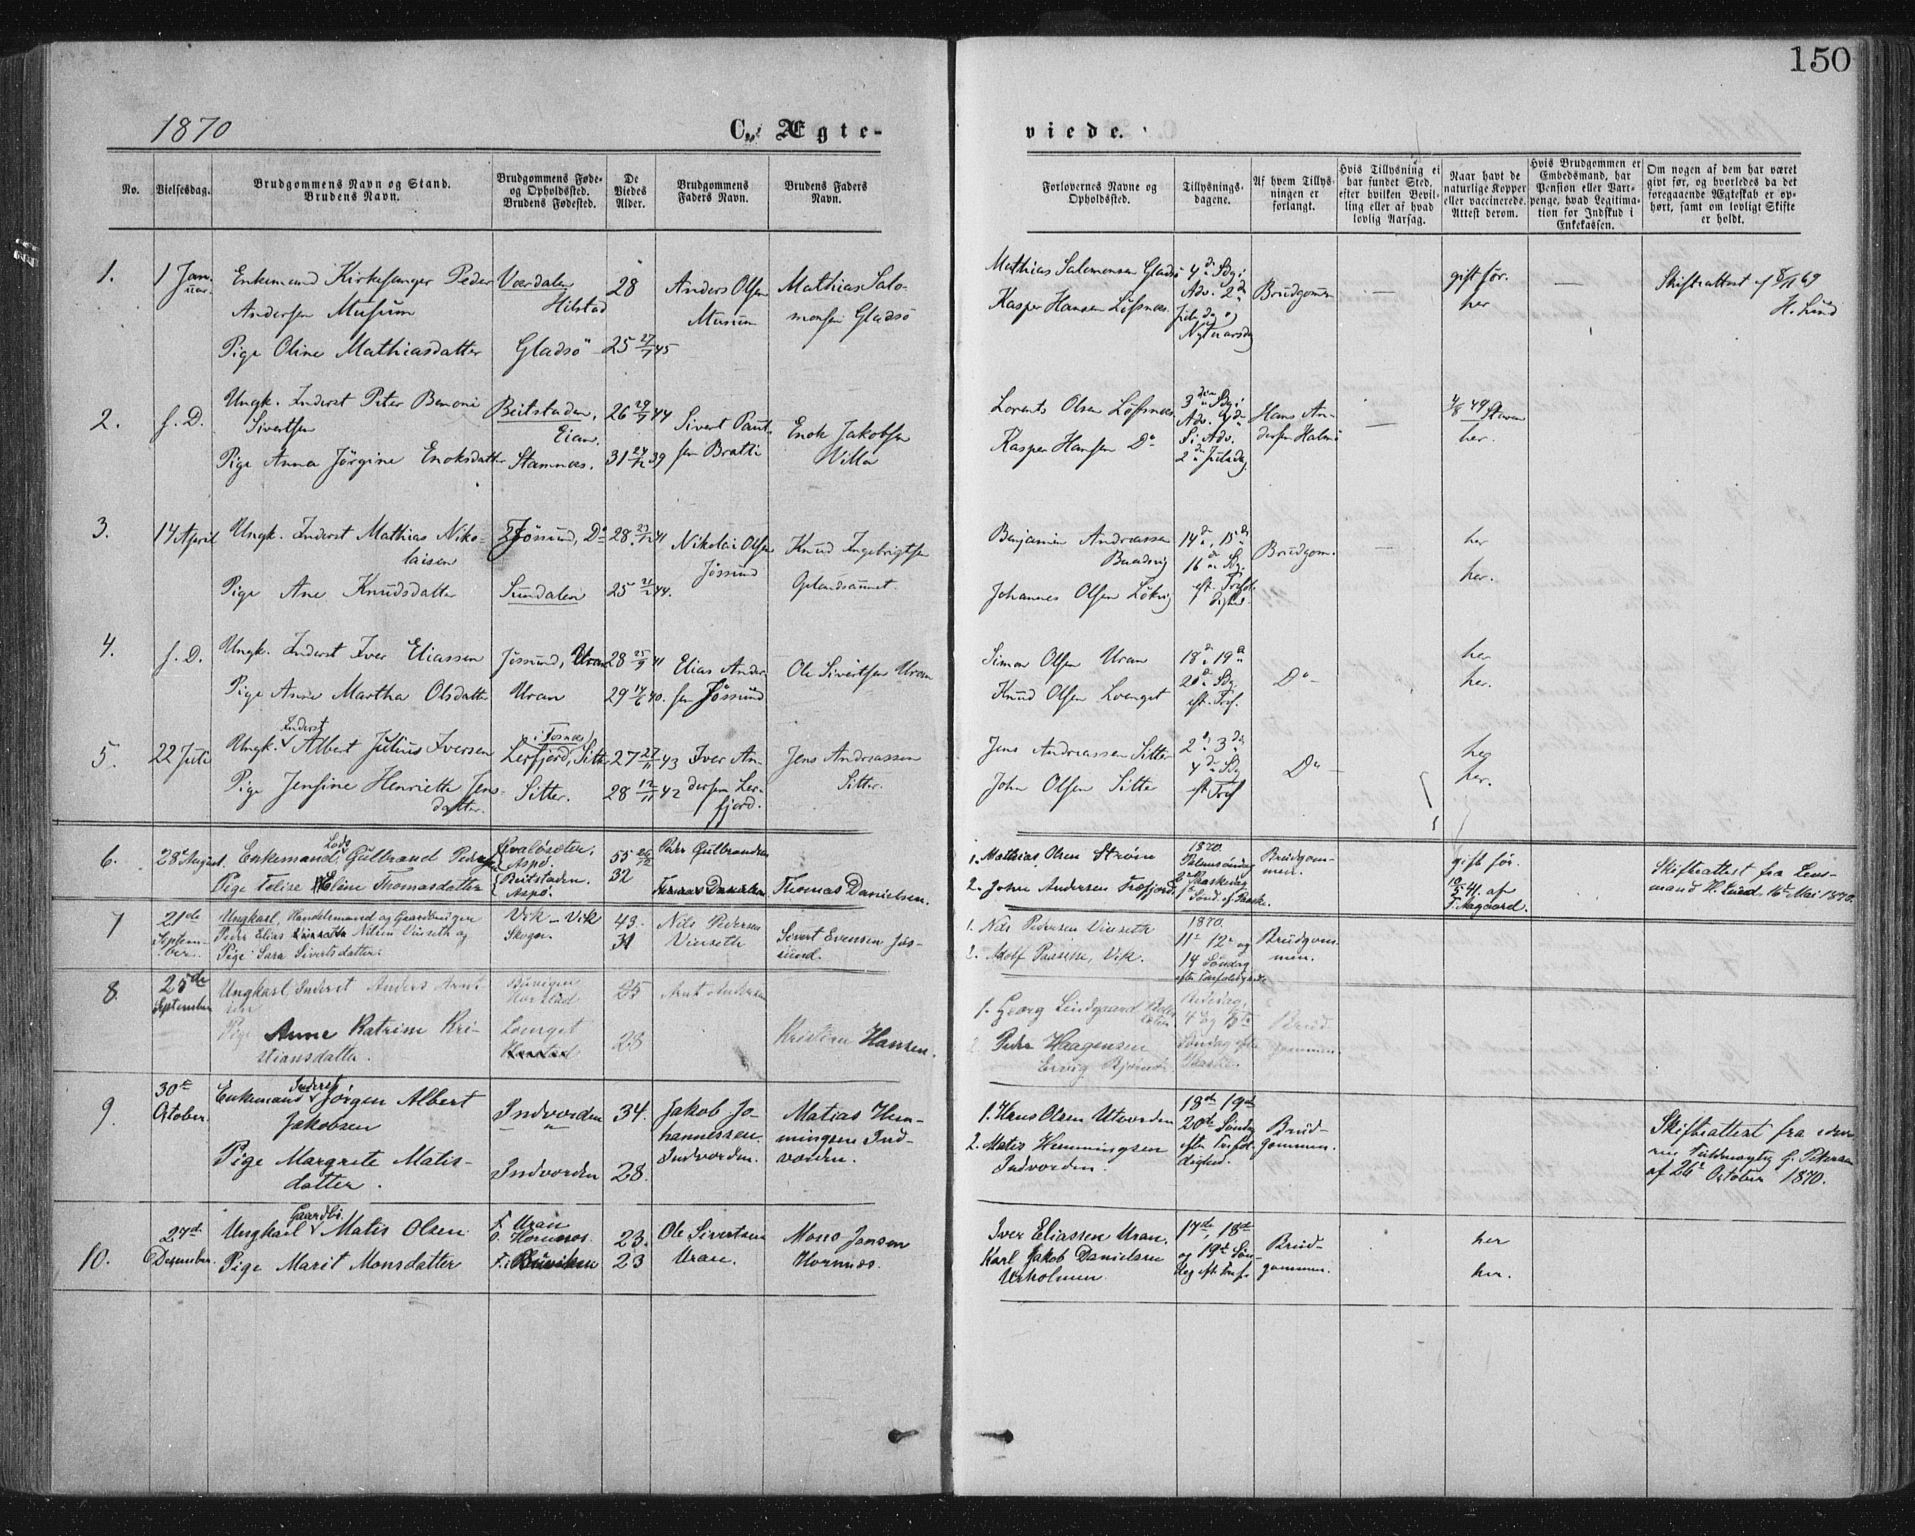 150
1870
C. Ægte-
viede.
No.
Vielsesdag.
Brudgommens Navn og Stand.
Brudens Navn.
Brudgommens Føde-
og Opholdsted.
Brudens Fødested.
De
Viedes
Alder.
Brudgommens
Faders Navn.
Brudens Faders
Navn.
Forlovernes Navne og
Opholdsted.
Tillysnings-
dagene.
Af hvem Tillys-
ningen er
forlangt.
Hvis Tillysning ei
har fundet Sted,
efter hvilken Bevil-
ling eller af hvad
lovlig Aarsag.
Naar havt de
naturlige Kopper
eller vaccinerede.
Attest derom.
Hvis Brudgommen er
Embedsmand, har
Pension eller Vart-
penge, hvad Legitima-
tion for Indskud i
Enkekassen.
Om nogen af dem har været
gift før, og hvorledes da det
foregaaende Ægteskab er op-
hørt, samt om lovligt Skifte
er holdt.
1.
1 Jan-
uar.
Enkemand Kirkesanger Peder
Andersen Musum
Pige Oline Mathiasdatter
Værdalen
Hilstad
Gladsö
28
25 27/7 45
Anders Olsen
Musum
Mathias Salo-
monsen Gladsö
Mathias Salomonsen Gladsö
Kasper Hansen Löfsnes
4de Sdg i
Adv. 2d
Juledag og
Nytaarsdag
Brudgommen
—
gift før.
her
—
Skifteattest af 8/1 69
H. Lund
2.
s. D.
Ungk. Inderst Peter Benoni
Sivertsen
Pige Anna Jörgine Enoksdatter
Beitstaden,
Eian.
Stamnes.
26 29/9 44
31 27/12 39
Sivert Paul-
sen Bratli
Enok Jakobsen
Villa
Lorents Olsen Löfsnes
Kasper Hansen Do
3die Sdg i
Adv. 4de
S. i Adv.
2den Juledag
Hans An-
dersen Halmö
—
her.
3.
17 April
Ungk. Inderst Mathias Niko-
laisen
Pige Ane Knudsdatter
Jössund, Do
Sundalen
28. 41
25 44.
Nikolai Olsen
Jössund
Knud Ingebrigtsen
Benjamin Andreassen
Johannes Olsen
14de, 15de
16de Sdg.
eft. Trefol-
dighed.
Brudgom.
—
her
her.
4.
s. D.
Ungk. Inderst Iver Eliassen
Pige Ane Martha Olsdatter
Jössund, Uran
Uran
28 25/9 41
29 14/6 40.
Elias Ander-
sen Jössund
Ole Sivertsen Uran
Simon Olsen Uran
Knud Olsen Lvenget
18de 19de
20de Sdg.
eft. Tref.
Do
her
her.
5.
22 Juli
Inderst
Ungk. Albert Julius Iversen
Pige Jensine Henriette Jens-
datter.
i Fosnes
Lerfjord, Sitter
Sitter.
27 27/11 43
28 12/11 42
Iver An-
dersen Ler-
fjord.
Jens Andreassen
Sitter.
Jens Andreassen Sitter
John Olsen Sitter
2de 3de
4de Sdg
eft Tref
Do
her
her.
6.
28de August.
Enkemand Lods Gulbrand Pedersen
Pige Eline Thomasdatter
Aspö.
Beitstaden.
Aspö.
55
32
Peder Gulbrandsen
Thomas Danielsen.
1. Matthias Olsen Ström
2. John Andersen Træfjord.
1870.
Palmesöndag
2 Paaskedag
1 Sönd. ef. Paaske.
Brudgom-
men.
gift før.
af
F. Aagaard.
Skifteattest fra Lens-
mand H. Lund 16de Mai 1870.
7
21de
Septem-
ber.
Ungkarl, Handelsmand og Gaardbruger
Peder Elias Nilsen Vinseth og
Pige Sara Sivertsdatter.
Vik – Vik
Skogen.
43.
31
Nils Pedersen
Vinseth
Sivert Evensen Jös-
sund.
1. Nils Pedersen Vinseth
2. Adolf Paasche, Vik.
1870.
11te 12te og
14 Söndag
efter Trefoldighed
Brudgom-
men.
8.
25de
September
Ungkarl Inderst Anders Arnt-
sen
Pige Anne Katrine Kri-
stiansdatter.
Lvenget
28
Arnt Andersen
Kristian Hansen.
1. Georg Lindgaard
2. Peder Haagensen
Bededag,
4de og 5te
Söndag efter
Paaske.
Brud-
gommen.
9.
30te
October.
Inderst,
Enkemand Jörgen Albert
Jakobsen
Pige Margrete Matis-
datter.
Indvorden
Indvorden
34.
28.
Jakob Jo-
hannessen.
Indvorden.
Matias Hem-
mingsen Ind-
vorden.
1. Hans Olsen Utvorden
2. Matis Hemmingsen
Indvorden.
18de 19de
20de Söndag
efter Trefol-
dighed.
Brud-
gommen.
Skifteattest fra
Fuldmægtig G. Petersen
af 26de October 1870.
10.
27de
Desember.
Gaardbr.
Ungkarl Matis Olsen
Pige Marit Monsdatter
F. Uran
O. Hornnes.
F. i Buviken
23.
23
Ole Sivertsen
Uran.
Mons Jonsen
Hornnes.
Iver Eliassen Uran.
Karl Jakob Danielsen
17de, 18de
og 19de Sön-
dag eft. Tref.
Brud-
gommen.
her
her.